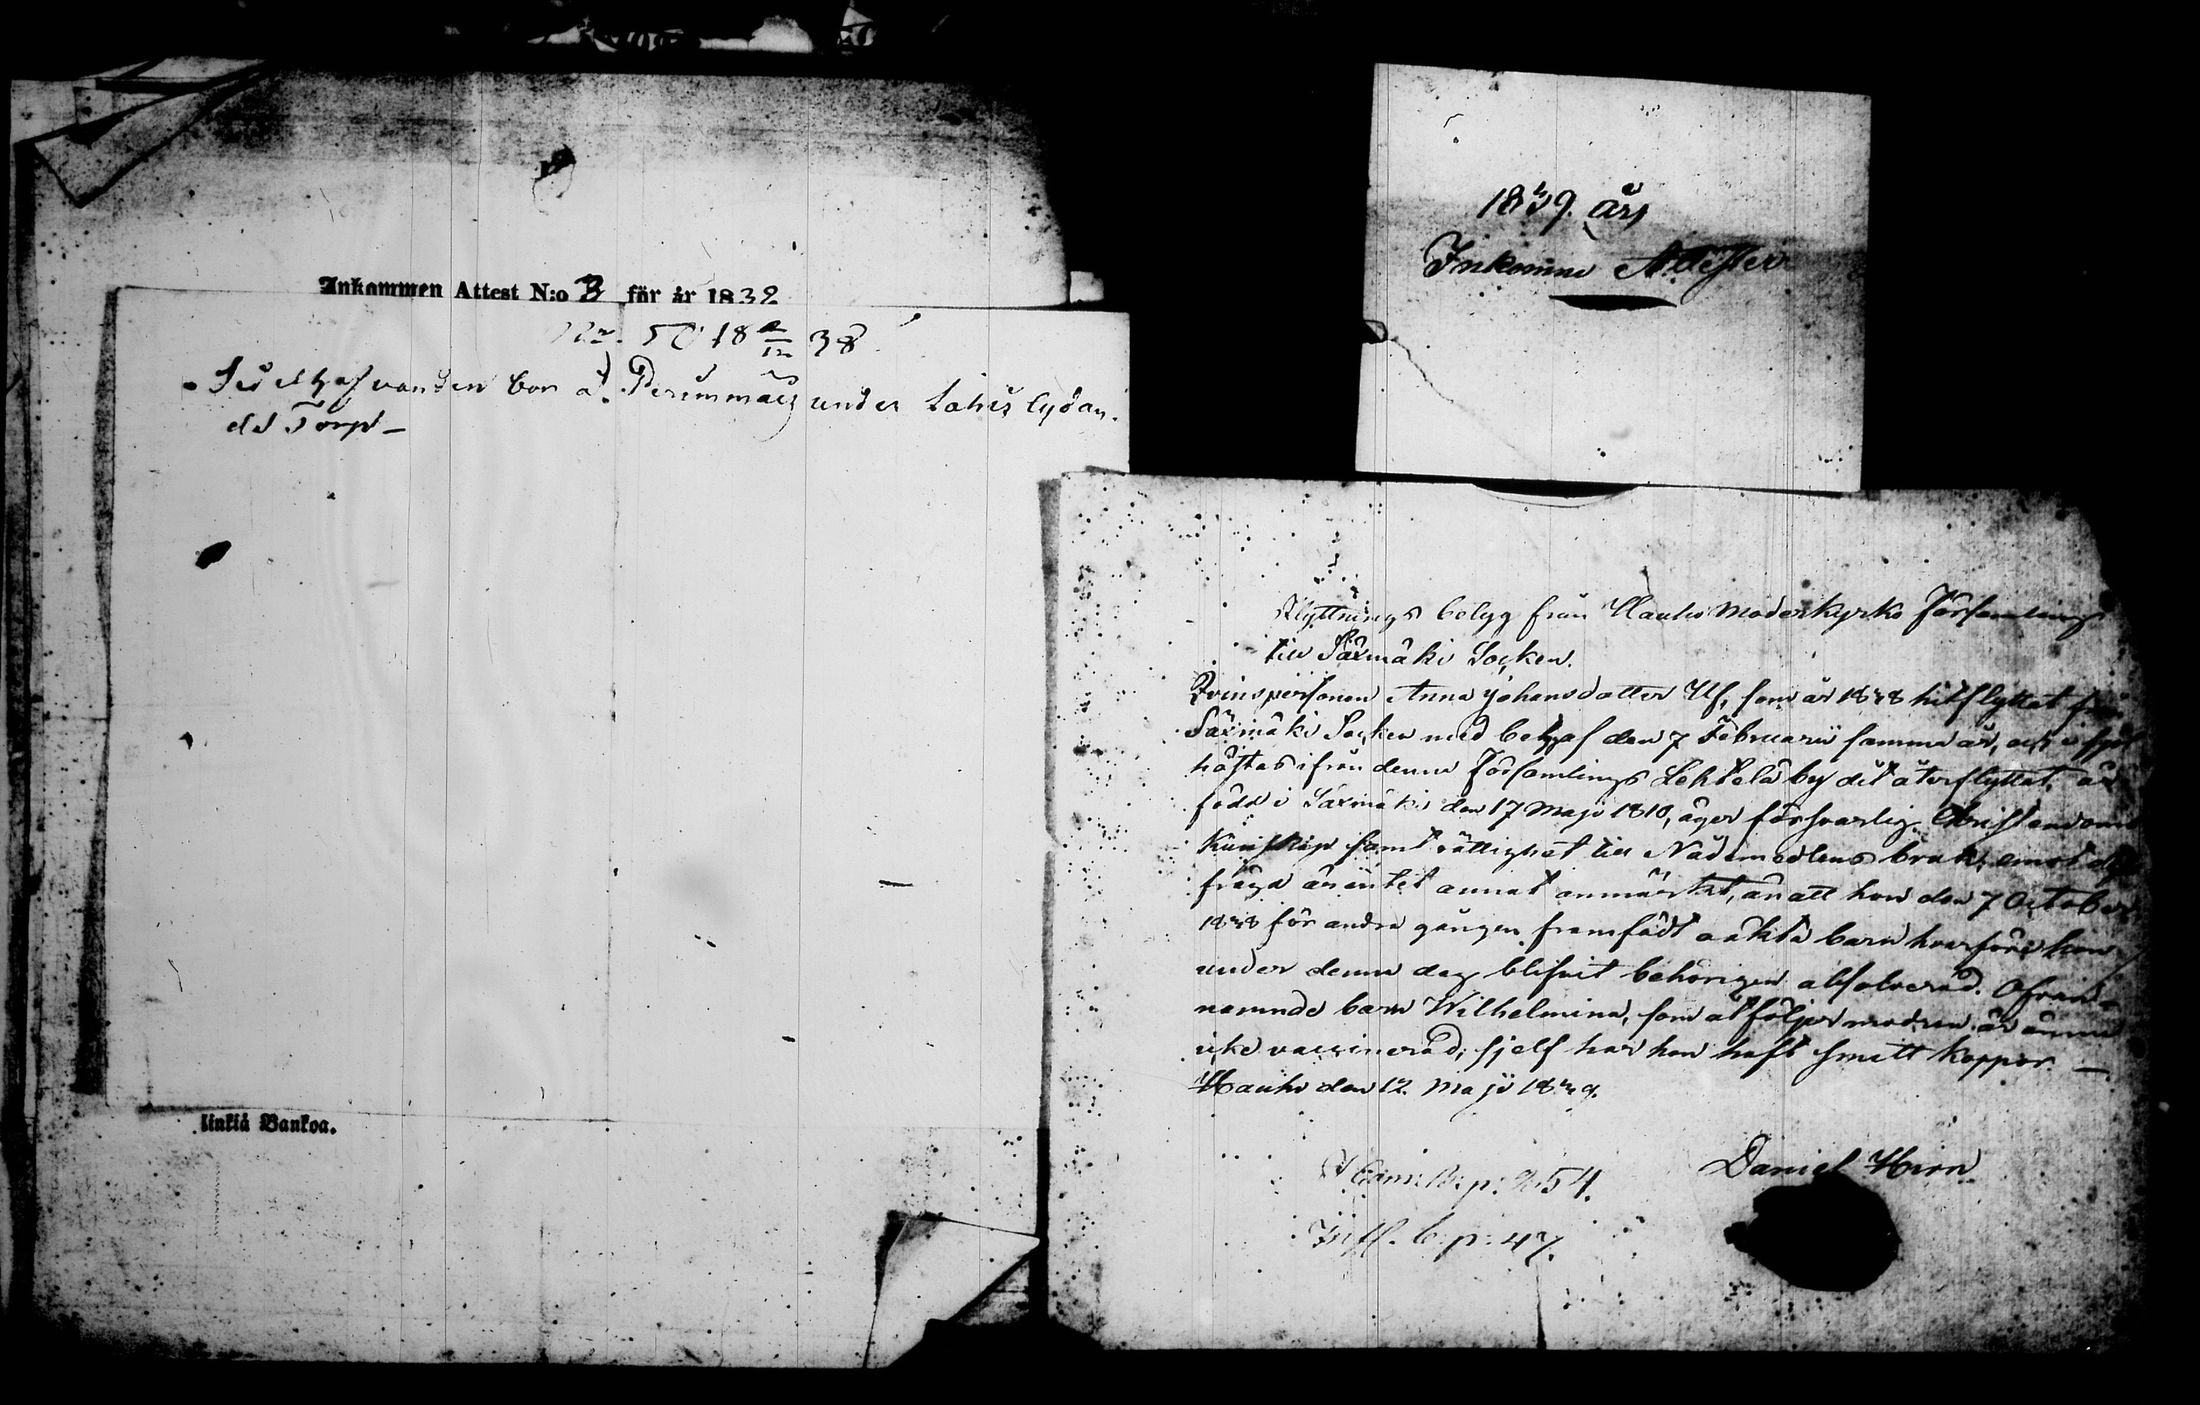 Inkommen Attest N:o 3 för år 1839
50 18 2/12 38
Sedelhafvanden bor å Perimmäis under Lahis lydan-
de Torp –
linkiä Bankoa.
1839. års
Inkomne Attester
Flyttnings betyg från Hauho Moderkyrko Församling
till Säxmäki Socken.
Qvinspersonen Anna Johansdotter Ulf, som år 1838 hitflyttat från
Säxmäki Socken med betyg af den 7 Februarii samma år, och i
höstas ifrån denna Församlings Lehtelä by dit återflyttat, är
född i Säxmäki den 17 Maji 1810, äger försvarlig Christendoms
Kunskap samt rättighet till Nådemedlens bruk; emot
frägd är intet annat anmärkt, än att hon den 7 October
1838 för andra gången framfödt oäkta barn hvarföre hon
under denna dag blifvit behörigen absolverad. Ofvan-
nämnde barn Wilhelmina, som åtföljer modren är ännu
icke vaccinerad; sjelf har hon haft smittkoppor. –
Hauho den 12. Maji 1839.
Daniel Hirn
Com: B: p: 254.
Infl. b: p: 47.